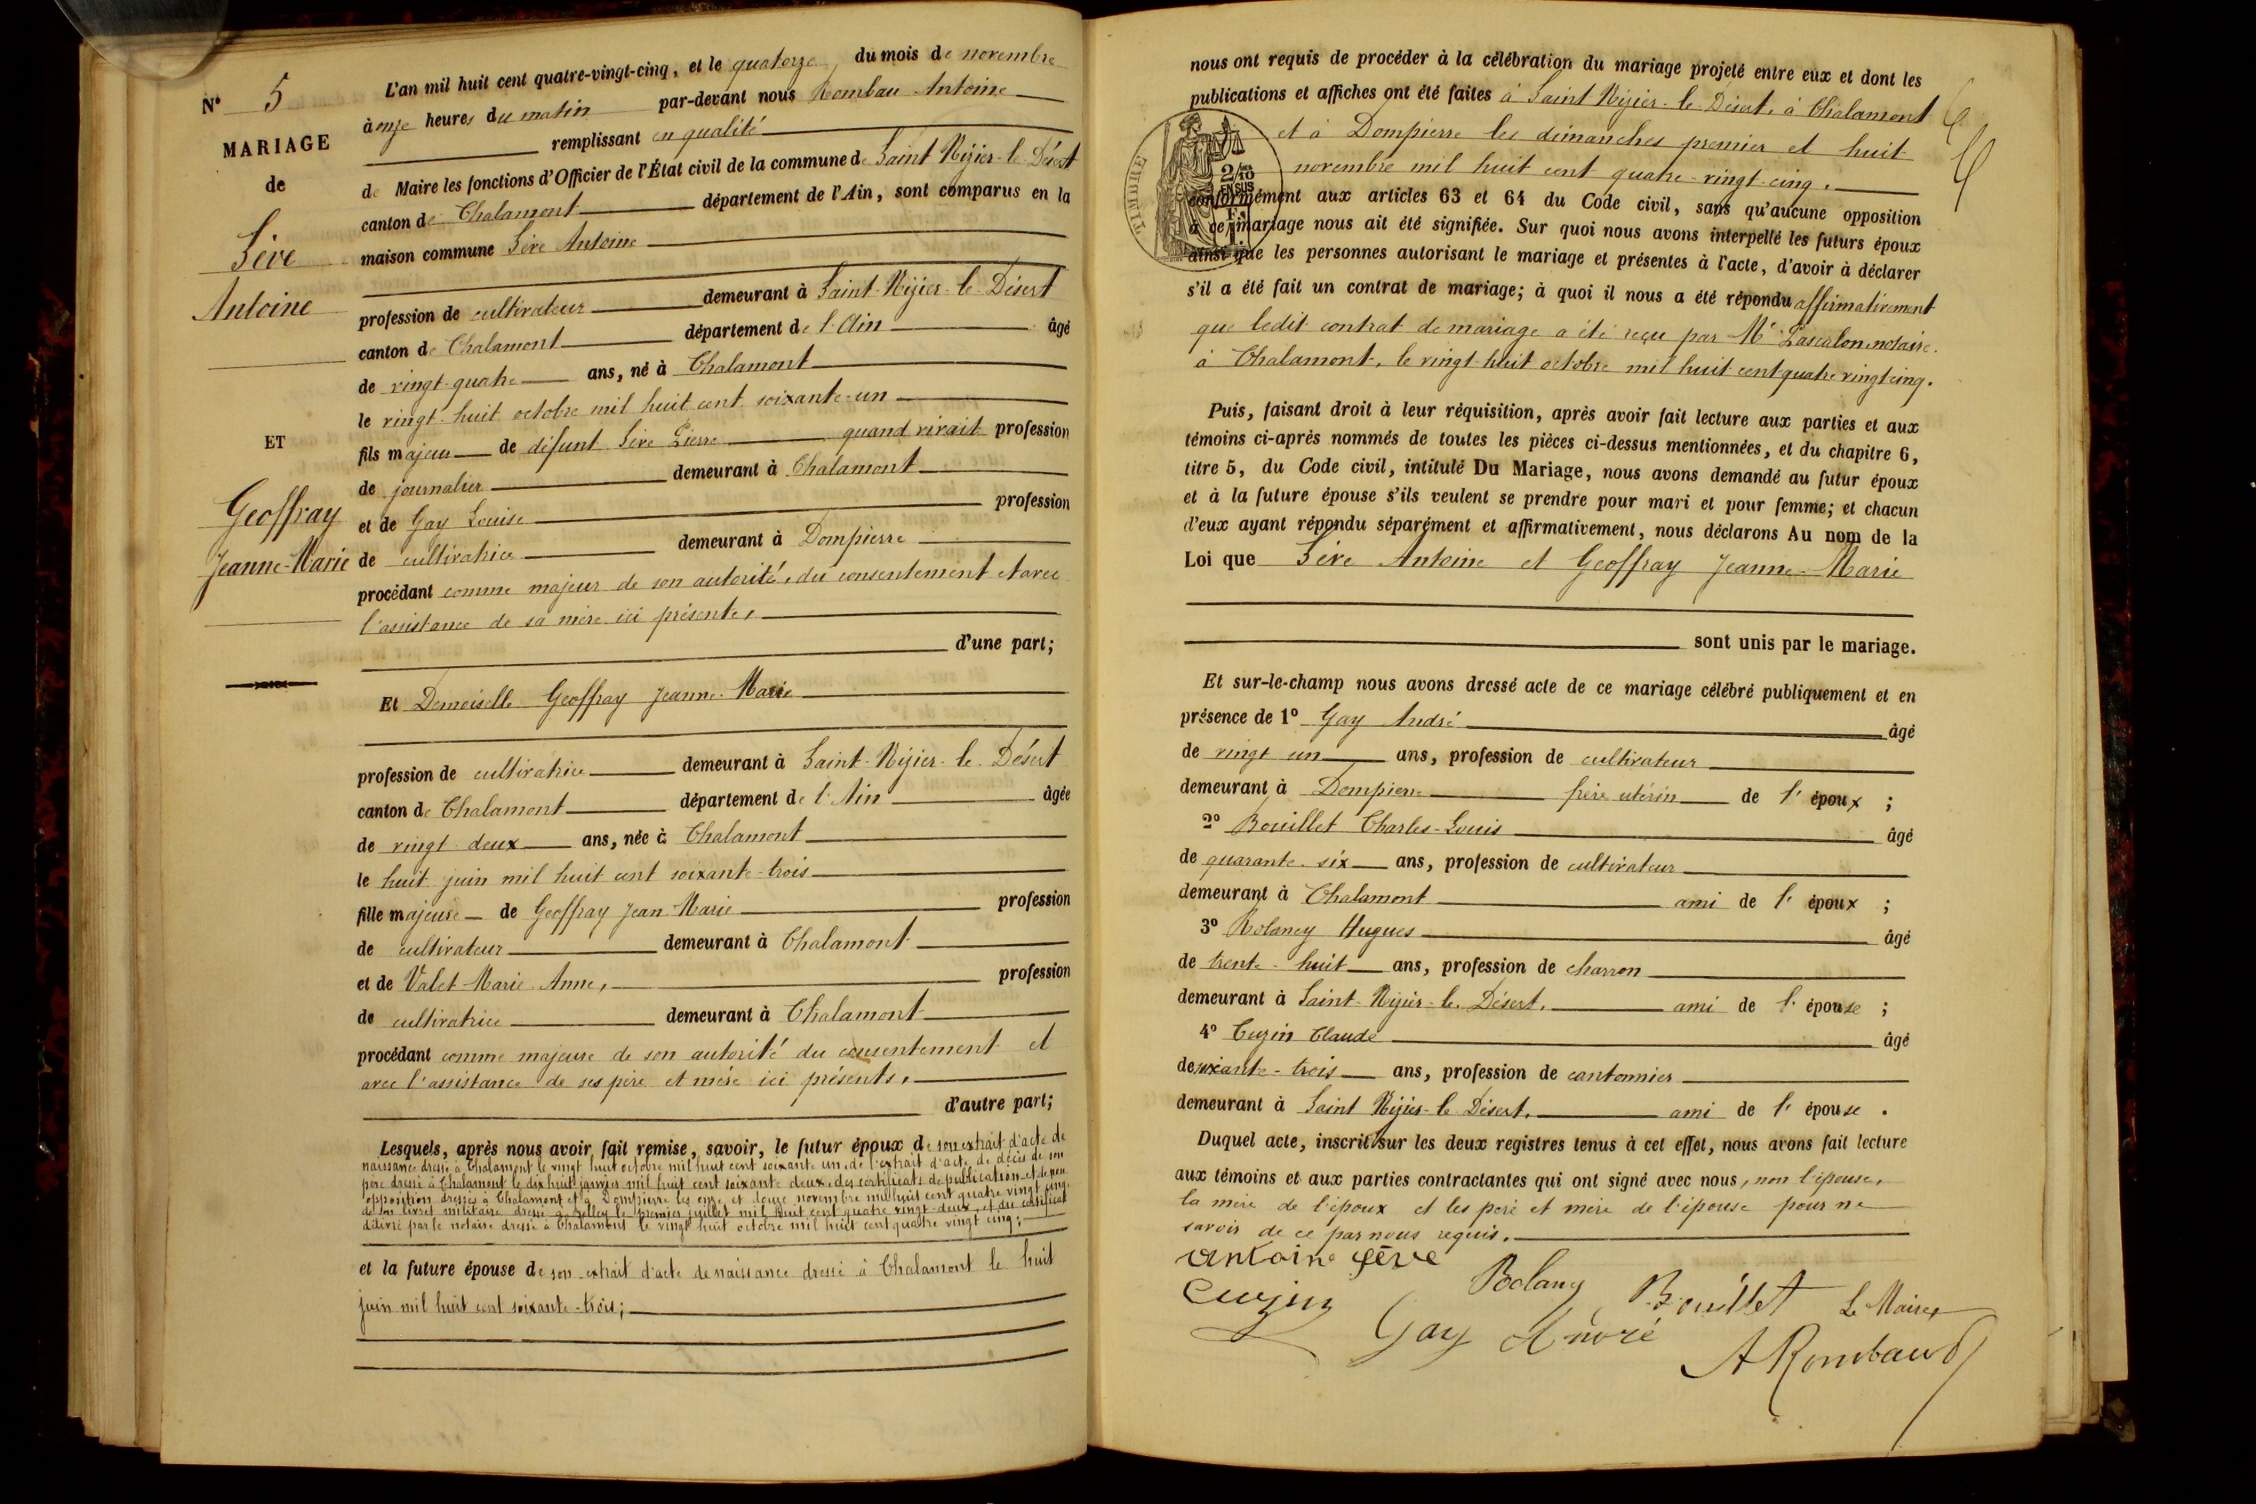 N° 5
MARIAGE
de
Sève
Antoine
ET
Geoffray
Jeanne-Marie
L'an mil huit cent quatre-vingt-cinq, et le quatorze du mois de novembre
à onze heures du matin par-devant nous Rombau Antoine
remplissant en qualité
de Maire les fonctions d'Officier de l'État civil de la commune de Saint Nizier-le-Désert
canton de Chalamont département de l'Ain, sont comparus en la
maison commune Sève Antoine
profession de cultivateur demeurant à Saint-Nizier-le-Désert
canton de Chalamont département de l'Ain âgé
de vingt-quatre ans, né à Chalamont
le vingt-huit octobre mil huit cent soixante-un
fils majeur de défunt Sève Pierre quand vivait profession
de journalier demeurant à Chalamont
et de Gay Louise profession
de cultivatrice demeurant à Dompierre
procédant comme majeur de son autorité, du consentement et avec
l'assistance de sa mère ici présente,
d'une part;
Et Demoiselle Geoffray Jeanne-Marie
profession de cultivatrice demeurant à Saint-Nizier-le-Désert
canton de Chalamont département de l'Ain âgée
de vingt-deux ans, née à Chalamont
le huit juin mil huit cent soixante-trois
fille majeure de Geoffray Jean-Marie profession
de cultivateur demeurant à Chalamont
et de Valet Marie-Anne, profession
de cultivatrice demeurant à Chalamont
procédant comme majeure de son autorité du consentement et
avec l'assistance de ses père et mère ici présents,
d'autre part;
Lesquels, après nous avoir fait remise, savoir, le futur époux de son extrait d'acte de
naissance dressé à Chalamont le vingt huit octobre mil huit cent soixante un, de l'extrait d'acte de décès de son
père dressé à Chalamont le dix huit janvier mil huit cent soixante deux, des certificats de publication et de non
opposition dressés à Chalamont et à Dompierre les onze et douze novembre mil huit cent quatre vingt cinq,
de son livret militaire dressé à Belley le premier juillet mil huit cent quatre vingt-deux et du certificat
délivré par le notaire dressé à Chalamont le vingt huit octobre mil huit cent quatre vingt cinq;
et la future épouse de son extrait d'acte de naissance dressé à Chalamont le huit
juin mil huit cent soixante-trois;
nous ont requis de procéder à la célébration du mariage projeté entre eux et dont les
publications et affiches ont été faites à Saint Nizier-le-Désert, à Chalamont
et à Dompierre les dimanches premier et huit
novembre mil huit cent quatre-vingt-cinq.
TIMBRE
2/10
EN SUS
conformément aux articles 63 et 64 du Code civil, sans qu'aucune opposition
à ce mariage nous ait été signifiée. Sur quoi nous avons interpellé les futurs époux
ainsi que les personnes autorisant le mariage et présentes à l'acte, d'avoir à déclarer
s'il a été fait un contrat de mariage; à quoi il nous a été répondu affirmativement
que ledit contrat de mariage a été reçu par Me Pascalon, notaire
à Chalamont, le vingt-huit octobre mil huit cent quatre vingt cinq.
Puis, faisant droit à leur réquisition, après avoir fait lecture aux parties et aux
témoins ci-après nommés de toutes les pièces ci-dessus mentionnées, et du chapitre 6,
titre 5, du Code civil, intitulé Du Mariage, nous avons demandé au futur époux
et à la future épouse s'ils veulent se prendre pour mari et pour femme; et chacun
d'eux ayant répondu séparément et affirmativement, nous déclarons Au nom de la
Loi que Sève Antoine et Geoffray Jeanne-Marie
sont unis par le mariage.
Et sur-le-champ nous avons dressé acte de ce mariage célébré publiquement et en
présence de 1° Gay André âgé
de vingt un ans, profession de cultivateur
demeurant à Dompierre frère utérin de l'époux ;
2° Bouillet Charles-Louis âgé
de quarante-six ans, profession de cultivateur
demeurant à Chalamont ami de l'époux ;
3° Rolancy Hugues âgé
de trente-huit ans, profession de charron
demeurant à Saint-Nizier-le-Désert, ami de l'épouse ;
4° Cuzin Claude âgé
de soixante-trois ans, profession de cantonnier
demeurant à Saint Nizier-le-Désert, ami de l'épouse .
Duquel acte, inscrit sur les deux registres tenus à cet effet, nous avons fait lecture
aux témoins et aux parties contractantes qui ont signé avec nous, non l'épouse,
la mère de l'époux et les père et mère de l'épouse pour ne
savoir de ce par nous requis.
Antoine Sève
Cuzin Rolancy Bouillet Le Maire
Gay André
A Rombaud